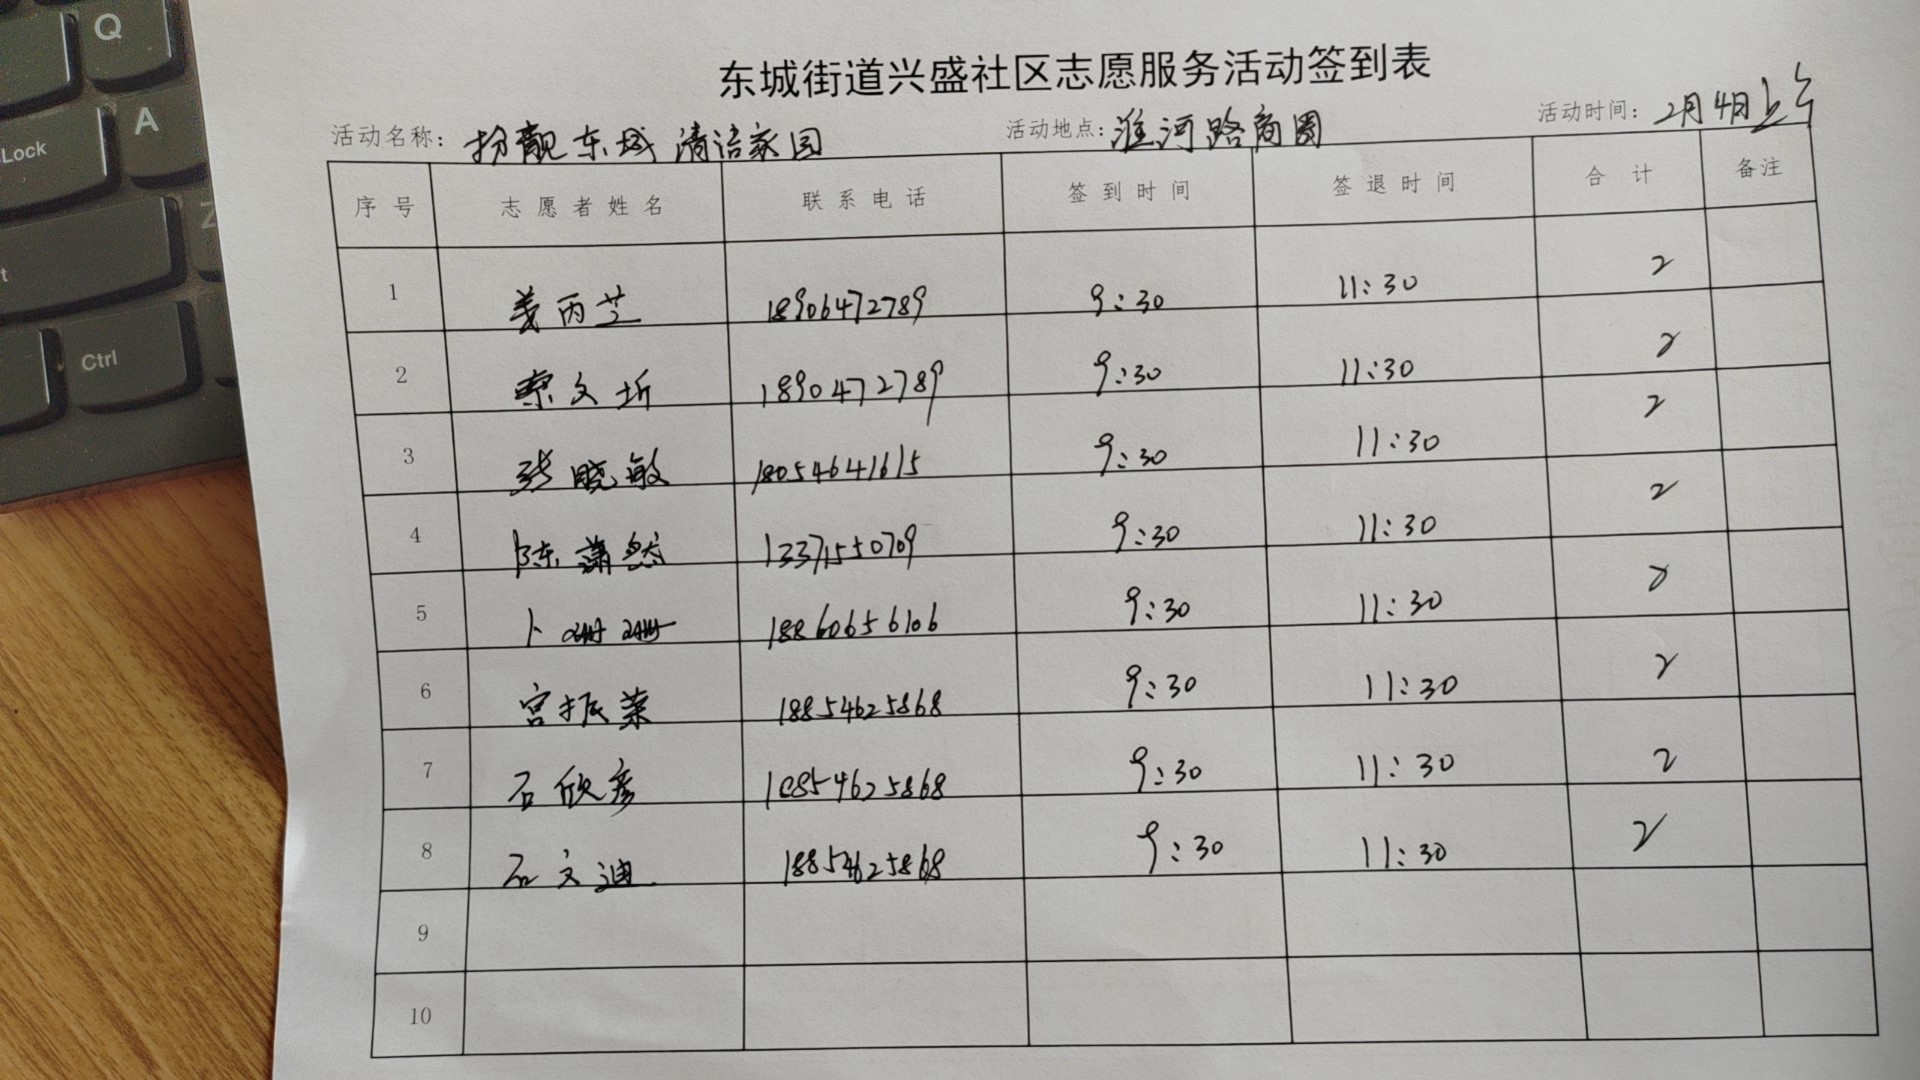 Q
A
Lock
Z
Ctrl
东城街道兴盛社区志愿服务活动签到表
活动名称: 扮靓东城 清洁家园 活动地点: 淮河路商圈 活动时间: 2月4日上午
序号 志愿者姓名 联系电话 签到时间 签退时间 合计 备注
1 姜丙芝 18906472789 9:30 11:30 2
2 索文圻 1890472789 9:30 11:30 2
3 张晓敏 18054641615 9:30 11:30 2
4 陈萧然 13371550709 9:30 11:30 2
5 卜 18860656106 9:30 11:30 2
6 宫振荣 18854625868 9:30 11:30 2
7 石欣彦 18854625868 9:30 11:30 2
8 石文迪 18854625868 9:30 11:30 2
9
10